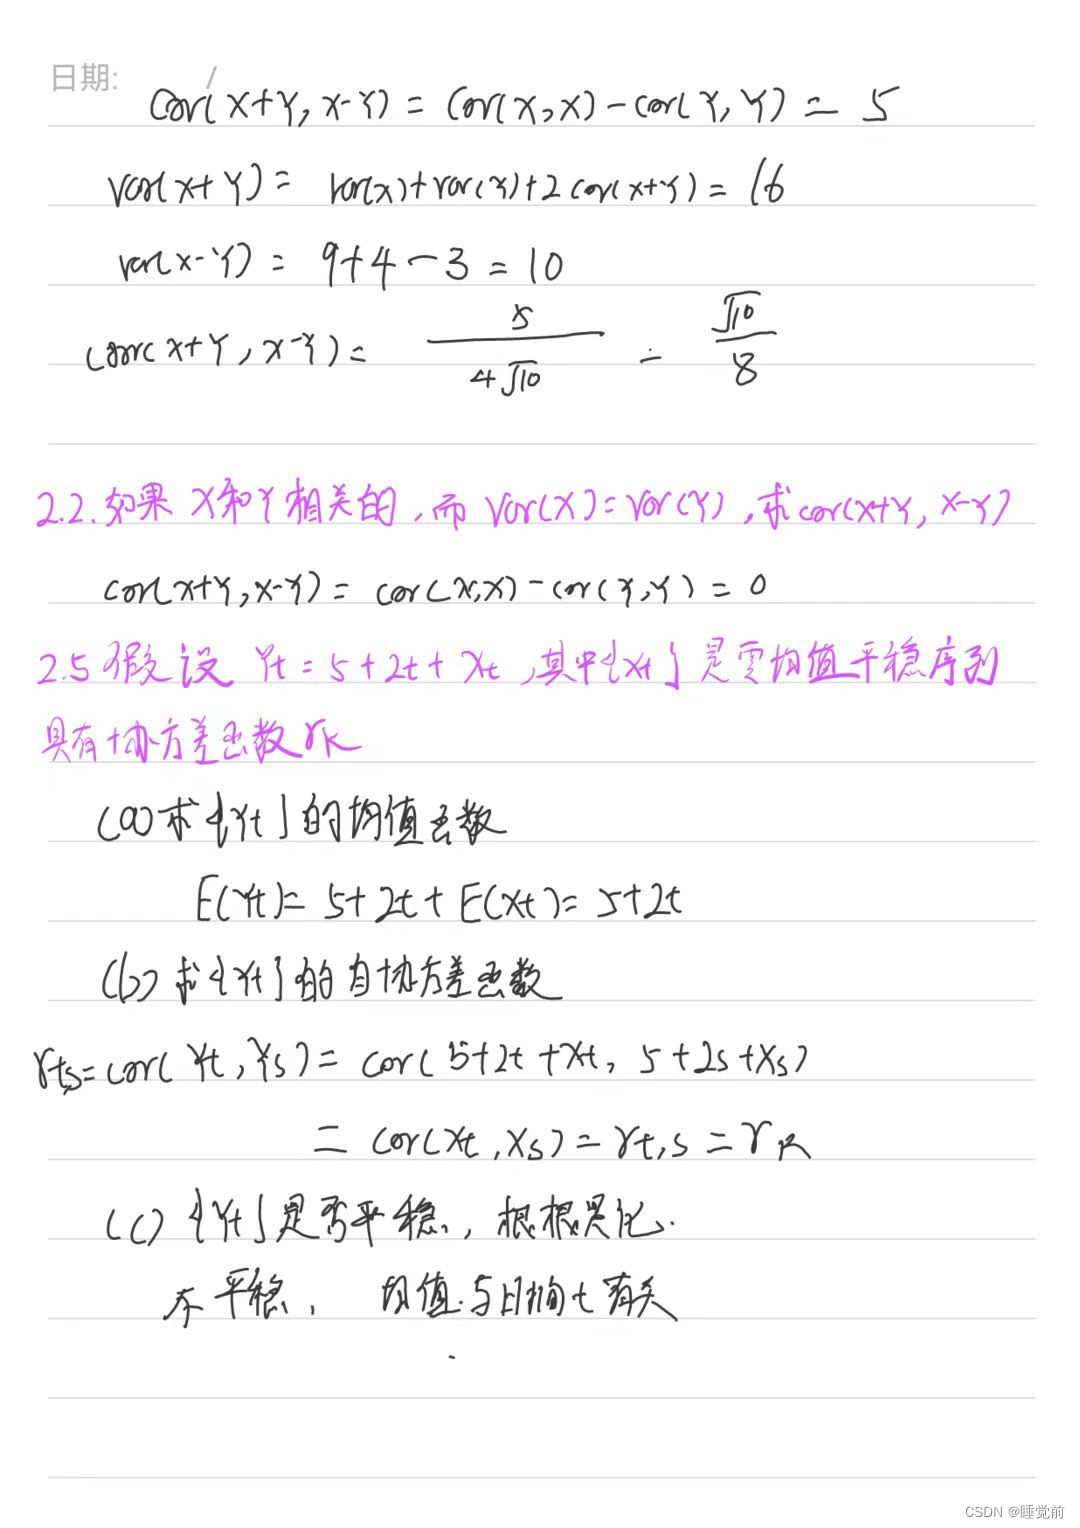 日期: /
Cov(X+Y, X-Y) = Cov(X,X) - cov(Y,Y) = 5
Var(X+Y) = Var(X)+Var(Y)+2cov(X+Y) = 16
var(X-Y) = 9+4-3 = 10
Corr(X+Y, X-Y) = 5/4√10 = √10/8
2.2. 如果 X和Y相关的,而 Var(X)=Var(Y),求cov(X+Y, X-Y)
cov(X+Y, X-Y) = cov(X,X) - cov(Y,Y) = 0
2.5 假设 Yt = 5+2t+Xt ,其中{Xt}是零均值平稳序列
具有协方差函数γk
(a) 求{Yt}的均值函数
E(Yt) = 5+2t+E(Xt) = 5+2t
(b) 求{Yt}的自协方差函数
γt,s = cov(Yt, Ys) = cov(5+2t+Xt, 5+2s+Xs)
= cov(Xt, Xs) = γt,s = γk
(c) {Yt}是否平稳,
不平稳, 均值与时间t有关
CSDN @睡觉前